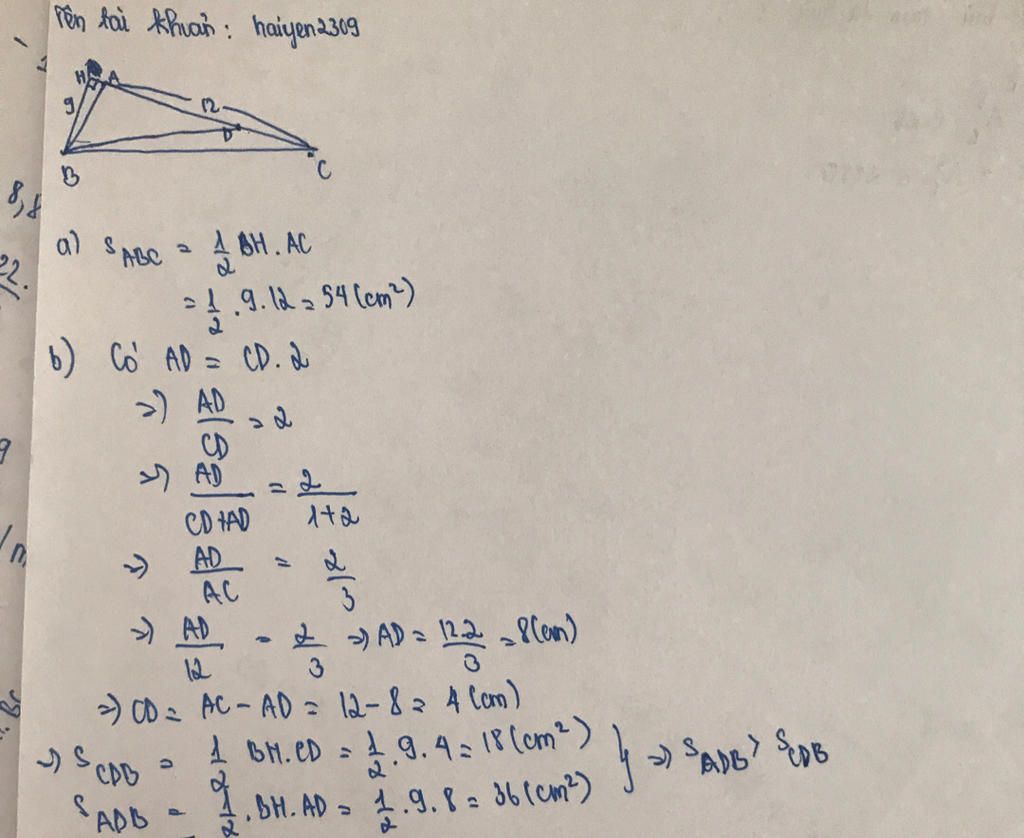 Tên tài khoản: haiyen2309
H A
9 12
D
B C
a) S ABC = 1/2 BH. AC
= 1/2 . 9. 12 = 54 (cm²)
b) Có AD = CD. 2
=> AD/CD = 2
=> AD/(CD+AD) = 2/(1+2)
=> AD/AC = 2/3
=> AD/12 = 2/3 => AD = 12.2/3 = 8(cm)
=> CD = AC - AD = 12 - 8 = 4 (cm)
=> S CDB = 1/2 BH. CD = 1/2 . 9. 4 = 18 (cm²)
S ADB = 1/2 . BH. AD = 1/2 . 9. 8 = 36 (cm²) } => S ADB > S CDB
8,8
22.
9